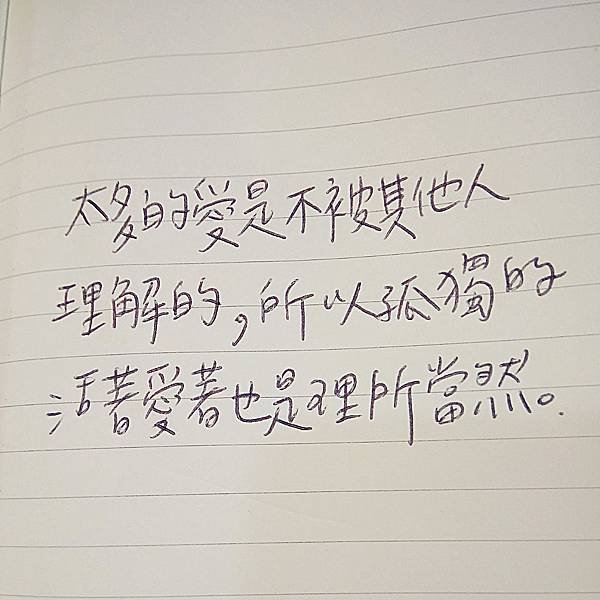 太多的愛是不被其他人
理解的,所以孤獨的
活著愛著也是理所當然。